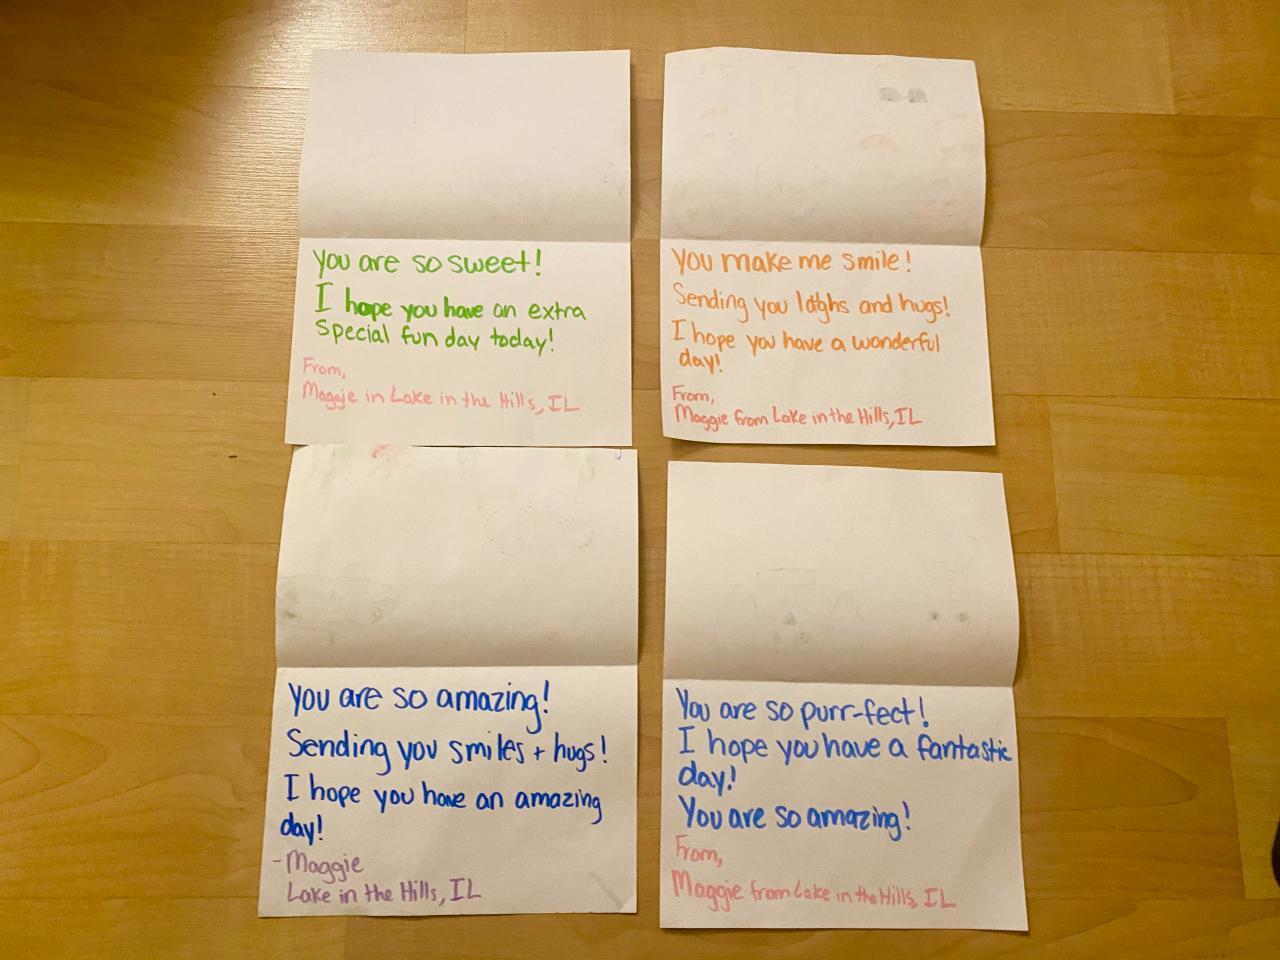 You are so sweet!
I hope you have an extra
special fun day today!
From,
Maggie in Lake in the Hills, IL
You make me smile!
Sending you laughs and hugs!
I hope you have a wonderful
day!
From,
Maggie from Lake in the Hills, IL
You are so amazing!
Sending you smiles + hugs!
I hope you have an amazing
day!
-Maggie
Lake in the Hills, IL
You are so purr-fect!
I hope you have a fantastic
day!
You are so amazing!
From,
Maggie from Lake in the Hills, IL